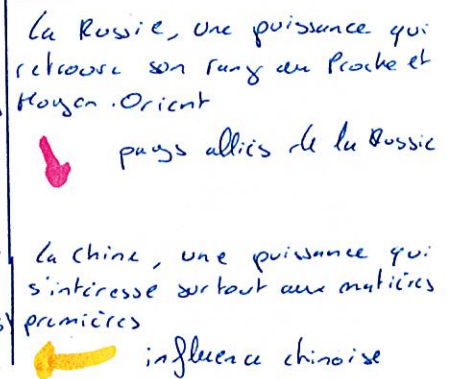 La Russie, une puissance qui
retrouve son rang au Proche et
Moyen-Orient
pays alliés de la Russie
La Chine, une puissance qui
s'intéresse surtout aux matières
premières
influence chinoise